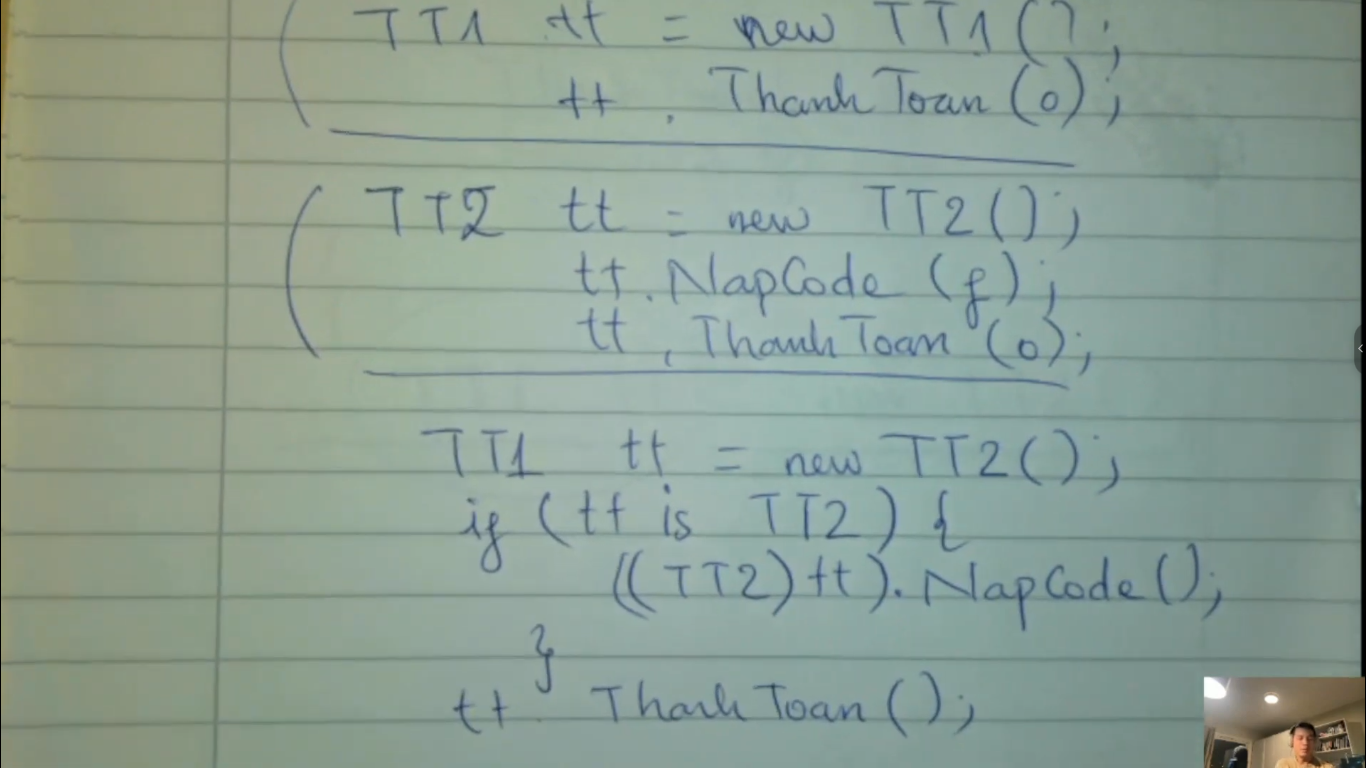 TT1 tt = new TT1();
tt. ThanhToan (o);
TT2 tt = new TT2();
tt. NapCode (f);
tt. ThanhToan (o);
TT1 tt = new TT2();
if (tt is TT2) {
((TT2) tt). NapCode ();
}
tt. ThanhToan ();